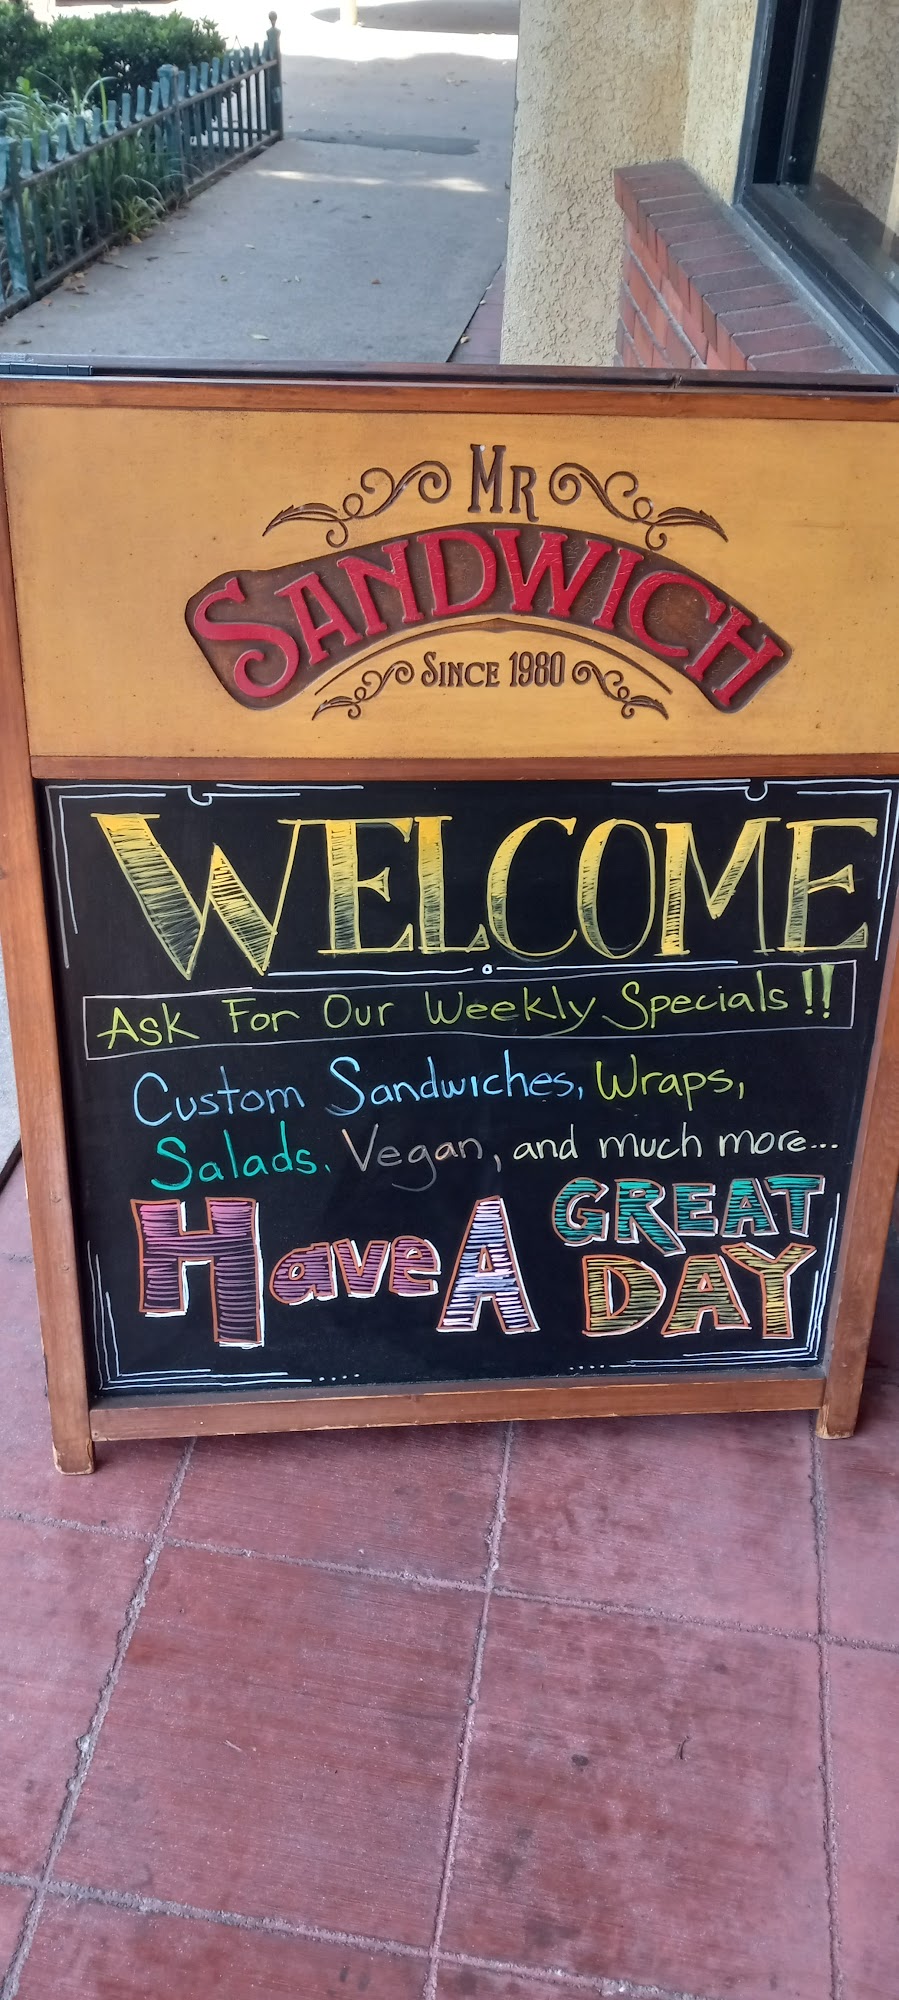 MR
SANDWICH
SINCE 1980
WELCOME
Ask For Our Weekly Specials!!
Custom Sandwiches, Wraps,
Salads. Vegan, and much more...
Have A GREAT
DAY